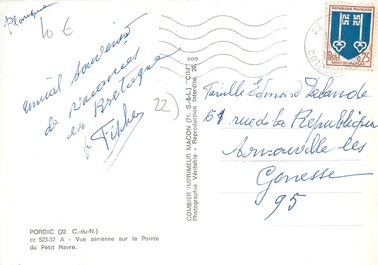 10 €
amical souvenir
de vacances
en Bretagne
22)
PORDIC (22. C.-du-N.)
cc 523-37 A - Vue aérienne sur la Pointe
du Petit Havre.
COMBIER IMPRIMEUR MACON (71. S.-&-L.) "CIM"
Photographie Véritable - Reproduction Interdite
REPUBLIQUE FRANÇAISE
0,25
22
Famille Edmond Lalande
61 rue de la République
Arnouville les
Gonesse
95